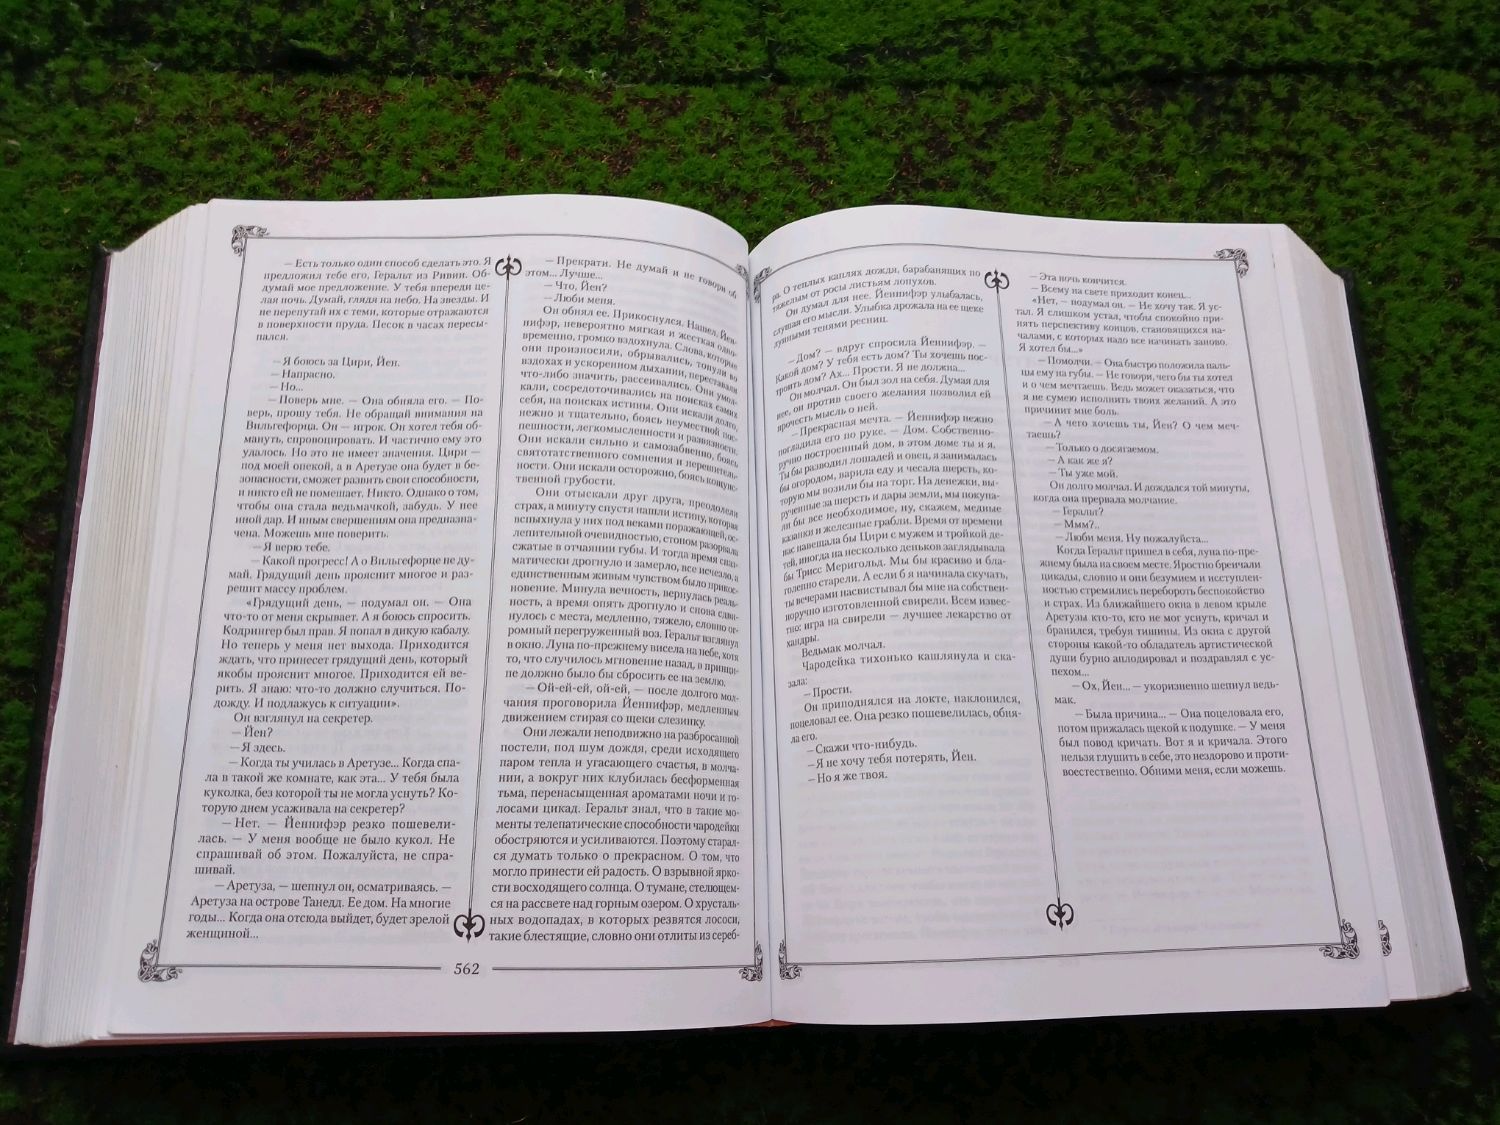 — Есть только один способ сделать это. Я
предложил тебе его, Геральт из Ривии. Об-
думай мое предложение. У тебя впереди це-
лая ночь. Думай, глядя на небо. На звезды. И
не перепутай их с теми, которые отражаются
в поверхности пруда. Песок в часах пересы-
пался.
— Я боюсь за Цири, Йен.
— Напрасно.
— Но...
— Поверь мне. — Она обняла его. — По-
верь, прошу тебя. Не обращай внимания на
Вильгефорца. Он — игрок. Он хотел тебя об-
мануть, спровоцировать. И частично ему это
удалось. Но это не имеет значения. Цири —
под моей опекой, а в Аретузе она будет в бе-
зопасности, сможет развить свои способности,
и никто ей не помешает. Никто. Однако о том,
чтобы она стала ведьмачкой, забудь. У нее
иной дар. И иным свершениям она предназна-
чена. Можешь мне поверить.
— Я верю тебе.
— Какой прогресс! А о Вильгефорце не ду-
май. Грядущий день прояснит многое и раз-
решит массу проблем.
«Грядущий день, — подумал он. — Она
что-то от меня скрывает. А я боюсь спросить.
Кодрингер был прав. Я попал в дикую кабалу.
Но теперь у меня нет выхода. Приходится
ждать, что принесет грядущий день, который
якобы прояснит многое. Приходится ей ве-
рить. Я знаю: что-то должно случиться. По-
дожду. И подлажусь к ситуации».
Он взглянул на секретер.
— Йен?
— Я здесь.
— Когда ты училась в Аретузе... Когда спа-
ла в такой же комнате, как эта... У тебя была
куколка, без которой ты не могла уснуть? Ко-
торую днем усаживала на секретер?
— Нет. — Йеннифэр резко пошевели-
лась. — У меня вообще не было кукол. Не
спрашивай об этом. Пожалуйста, не спра-
шивай.
— Аретуза, — шепнул он, осматриваясь. —
Аретуза на острове Танедд. Ее дом. На многие
годы... Когда она отсюда выйдет, будет зрелой
женщиной...
— Прекрати. Не думай и не говори об
этом... Лучше...
— Что, Йен?
— Люби меня.
Он обнял ее. Прикоснулся. Нашел. Йен-
нифэр, невероятно мягкая и жесткая одно-
временно, громко вздохнула. Слова, которые
они произносили, обрывались, тонули во
вздохах и ускоренном дыхании, переставали
что-либо значить, рассеивались. Они умол-
кали, сосредоточивались на поисках самих
себя, на поисках истины. Они искали долго,
нежно и тщательно, боясь неуместной пос-
пешности, легкомысленности и развязности.
Они искали сильно и самозабвенно, боясь
святотатственного сомнения и нерешитель-
ности. Они искали осторожно, боясь кощунс-
твенной грубости.
Они отыскали друг друга, преодолели
страх, а минуту спустя нашли истину, которая
вспыхнула у них под веками поражающей, ос-
лепительной очевидностью, стоном разорвала
сжатые в отчаянии губы. И тогда время спаз-
матически дрогнуло и замерло, все исчезло, а
единственным живым чувством было прикос-
новение. Минула вечность, вернулась реаль-
ность, а время опять дрогнуло и снова сдви-
нулось с места, медленно, тяжело, словно ог-
ромный перегруженный воз. Геральт взглянул
в окно. Луна по-прежнему висела на небе, хотя
то, что случилось мгновение назад, в принци-
пе должно было бы сбросить ее на землю.
— Ой-ей-ей, ой-ей, — после долгого мол-
чания проговорила Йеннифэр, медленным
движением стирая со щеки слезинку.
Они лежали неподвижно на разбросанной
постели, под шум дождя, среди исходящего
паром тепла и угасающего счастья, в молча-
нии, а вокруг них клубилась бесформенная
тьма, перенасыщенная ароматами ночи и го-
лосами цикад. Геральт знал, что в такие мо-
менты телепатические способности чародейки
обостряются и усиливаются. Поэтому старал-
ся думать только о прекрасном. О том, что
могло принести ей радость. О взрывной ярко-
сти восходящего солнца. О тумане, стелющем-
ся на рассвете над горным озером. О хрусталь-
ных водопадах, в которых резвятся лососи,
такие блестящие, словно они отлиты из сереб-
562
ра. О теплых каплях дождя, барабанящих по
тяжелым от росы листьям лопухов.
Он думал для нее. Йеннифэр улыбалась,
слушая его мысли. Улыбка дрожала на ее щеке
лунными тенями ресниц.
— Дом? — вдруг спросила Йеннифэр. —
Какой дом? У тебя есть дом? Ты хочешь пос-
троить дом? Ах... Прости. Я не должна...
Он молчал. Он был зол на себя. Думая для
нее, он против своего желания позволил ей
прочесть мысль о ней.
— Прекрасная мечта. — Йеннифэр нежно
погладила его по руке. — Дом. Собственно-
ручно построенный дом, в этом доме ты и я.
Ты бы разводил лошадей и овец, я занималась
бы огородом, варила еду и чесала шерсть, ко-
торую мы возили бы на торг. На денежки, вы-
рученные за шерсть и дары земли, мы покупа-
ли бы все необходимое, ну, скажем, медные
казанки и железные грабли. Время от времени
нас навещала бы Цири с мужем и тройкой де-
тей, иногда на несколько деньков заглядывала
бы Трисс Меригольд. Мы бы красиво и бла-
голепно старели. А если б я начинала скучать,
ты вечерами насвистывал бы мне на собствен-
норучно изготовленной свирели. Всем извес-
тно: игра на свирели — лучшее лекарство от
хандры.
Ведьмак молчал.
Чародейка тихонько кашлянула и ска-
зала:
— Прости.
Он приподнялся на локте, наклонился,
поцеловал ее. Она резко пошевелилась, обня-
ла его.
— Скажи что-нибудь.
— Я не хочу тебя потерять, Йен.
— Но я же твоя.
— Эта ночь кончится.
— Всему на свете приходит конец...
«Нет, — подумал он. — Не хочу так. Я ус-
тал. Я слишком устал, чтобы спокойно при-
нять перспективу концов, становящихся на-
чалами, с которых надо все начинать заново.
Я хотел бы...»
— Помолчи. — Она быстро положила паль-
цы ему на губы. — Не говори, чего бы ты хотел
и о чем мечтаешь. Ведь может оказаться, что
я не сумею исполнить твоих желаний. А это
причинит мне боль.
— А чего хочешь ты, Йен? О чем меч-
таешь?
— Только о досягаемом.
— А как же я?
— Ты уже мой.
Он долго молчал. И дождался той минуты,
когда она прервала молчание.
— Геральт?
— Ммм?..
— Люби меня. Ну пожалуйста...
Когда Геральт пришел в себя, луна по-пре-
жнему была на своем месте. Яростно бренчали
цикады, словно и они безумием и исступлен-
ностью стремились перебороть беспокойство
и страх. Из ближайшего окна в левом крыле
Аретузы кто-то, кто не мог уснуть, кричал и
бранился, требуя тишины. Из окна с другой
стороны какой-то обладатель артистической
души бурно аплодировал и поздравлял с ус-
пехом...
— Ох, Йен... — укоризненно шепнул ведь-
мак.
— Была причина... — Она поцеловала его,
потом прижалась щекой к подушке. — У меня
был повод кричать. Вот я и кричала. Этого
нельзя глушить в себе, это нездорово и проти-
воестественно. Обними меня, если можешь.